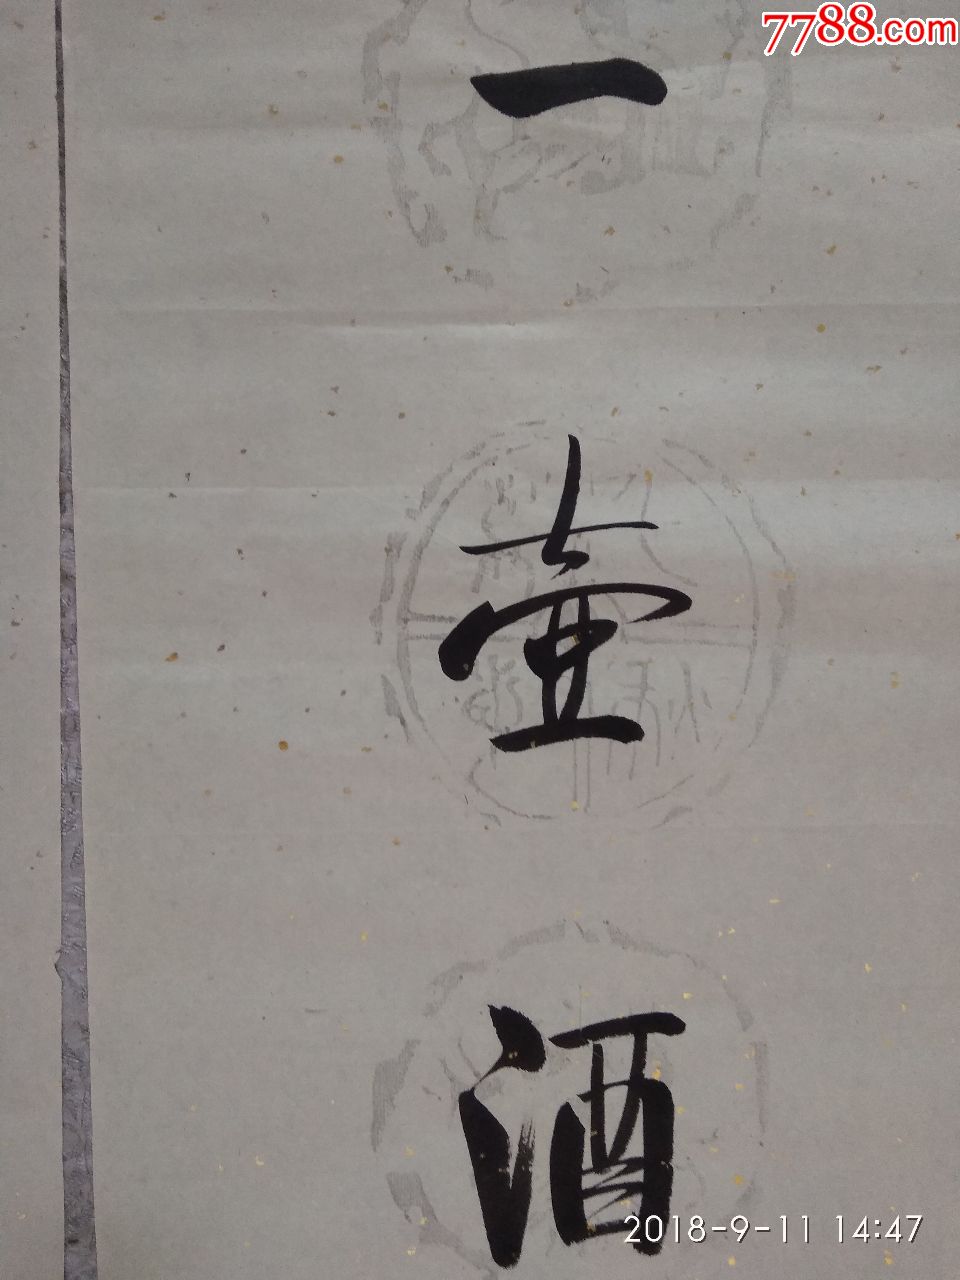 7788.com
一
壶
酒
2018-9-11 14:47